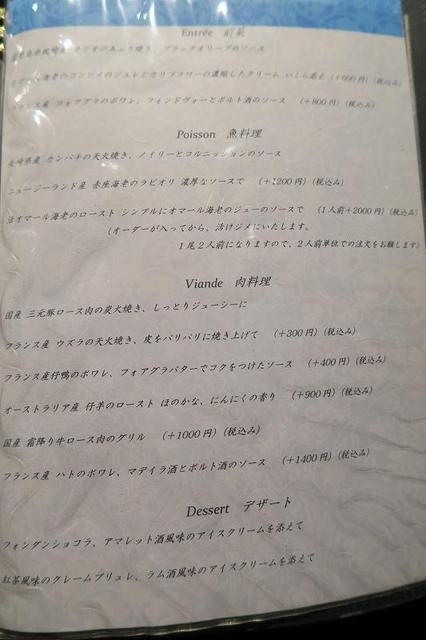 Entrée 前菜
カジキのあぶり焼き、ブラックオリーブのソース
オマール海老のコンソメのジュレとカリフラワーの濃縮したクリーム いくら添え (+600円) (税込み)
フランス産 フォアグラのポワレ、フォンドヴォーとポルト酒のソース (+800円) (税込み)
Poisson 魚料理
長崎県産 カンパチの天火焼き、ノイリーとコルニッションのソース
ニュージーランド産 赤座海老のラビオリ 濃厚なソースで (+1200円) (税込み)
活オマール海老のロースト シンプルにオマール海老のジューのソースで (1人前+2000円) (税込み)
(オーダーが入ってから、活けジメにいたします。
1尾2人前になりますので、2人前単位での注文をお願します)
Viande 肉料理
国産 三元豚ロース肉の炭火焼き、しっとりジューシーに
フランス産 ウズラの天火焼き、皮をパリパリに焼き上げて (+300円) (税込み)
フランス産仔鴨のポワレ、フォアグラバターでコクをつけたソース (+400円) (税込み)
オーストラリア産 仔羊のロースト ほのかな、にんにくの香り (+900円) (税込み)
国産 霜降り牛ロース肉のグリル (+1000円) (税込み)
フランス産 ハトのポワレ、マデイラ酒とポルト酒のソース (+1400円) (税込み)
Dessert デザート
フォンダンショコラ、アマレット酒風味のアイスクリームを添えて
紅茶風味のクレームブリュレ、ラム酒風味のアイスクリームを添えて